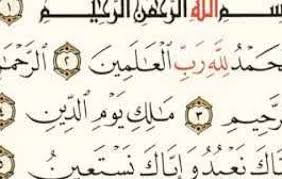 سم ٱللَّهِ ٱلرَّحْمَٰنِ ٱلرَّحِيمِ ١
حَمْدُ لِلَّهِ رَبِّ ٱلْعَٰلَمِينَ ٢ ٱلرَّحْمَٰ
رَّحِيمِ ٣ مَٰلِكِ يَوْمِ ٱلدِّينِ ٤
يَّاكَ نَعْبُدُ وَإِيَّاكَ نَسْتَعِينُ ٥